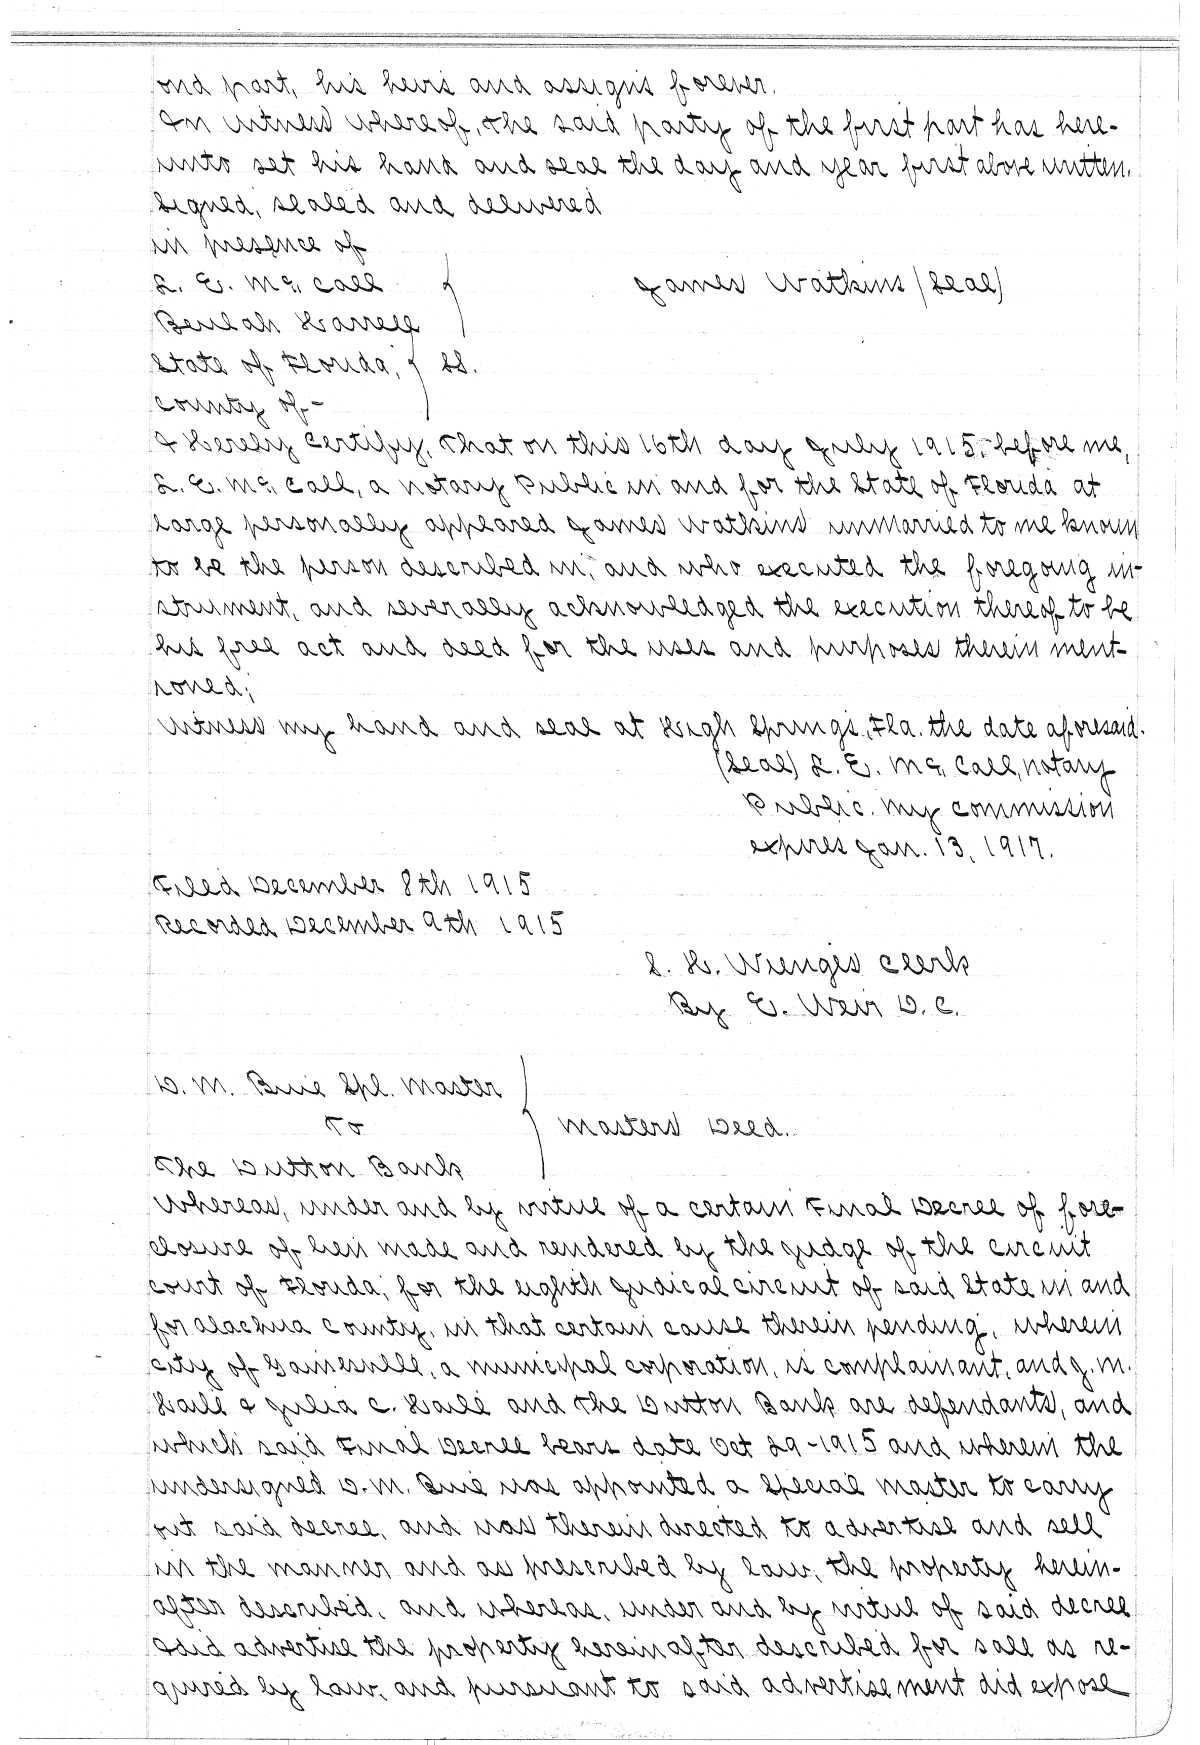 ond part, his heirs and assigns forever.
In witness whereof, the said party of the first part has here-
unto set his hand and seal the day and year first above written.
Signed, sealed and delivered
in presence of
L. E. Mc. Call
James Watkins (Seal)
Beulah Harrell
State of Florida, ss.
County of-
I Hereby certify, That on this 16th day July 1915, before me,
L. E. Mc. Call, a notary Public in and for the State of Florida at
large personally appeared James Watkins unmarried to me known
to be the person described in, and who executed the foregoing in-
strument, and severally acknowledged the execution thereof to be
his free act and deed for the uses and purposes therein ment-
ioned;
Witness my hand and seal at High Springs, Fla. the date aforesaid.
(Seal) L. E. Mc. Call, notary
Public. My commission
expires Jan. 13, 1917.
Filed December 8th 1915
Recorded December 9th 1915
S. H. Wienges Clerk
By E. Weir D. C.
D. M. Buie Spl. Master
To
Masters Deed.
The Dutton Bank
Whereas, under and by virtue of a certain Final Decree of fore-
closure of lien made and rendered by the judge of the circuit
court of Florida, for the eighth judical circuit of said State in and
for Alachua County, in that certain cause therein pending, wherein
city of Gainesville, a municipal corporation, is complainant, and J. M.
Haile & Julia C. Haile and The Dutton Bank are defendants, and
which said Final Decree bears date Oct 29-1915 and wherein the
undersigned D. M. Buie was appointed a Special master to carry
out said decree, and was therein directed to advertise and sell
in the manner and as prescribed by law, the property herein-
after described, and whereas, under and by virtue of said decree
I did advertise the property hereinafter described for sale as re-
quired by law, and pursuant to said advertisement did expose